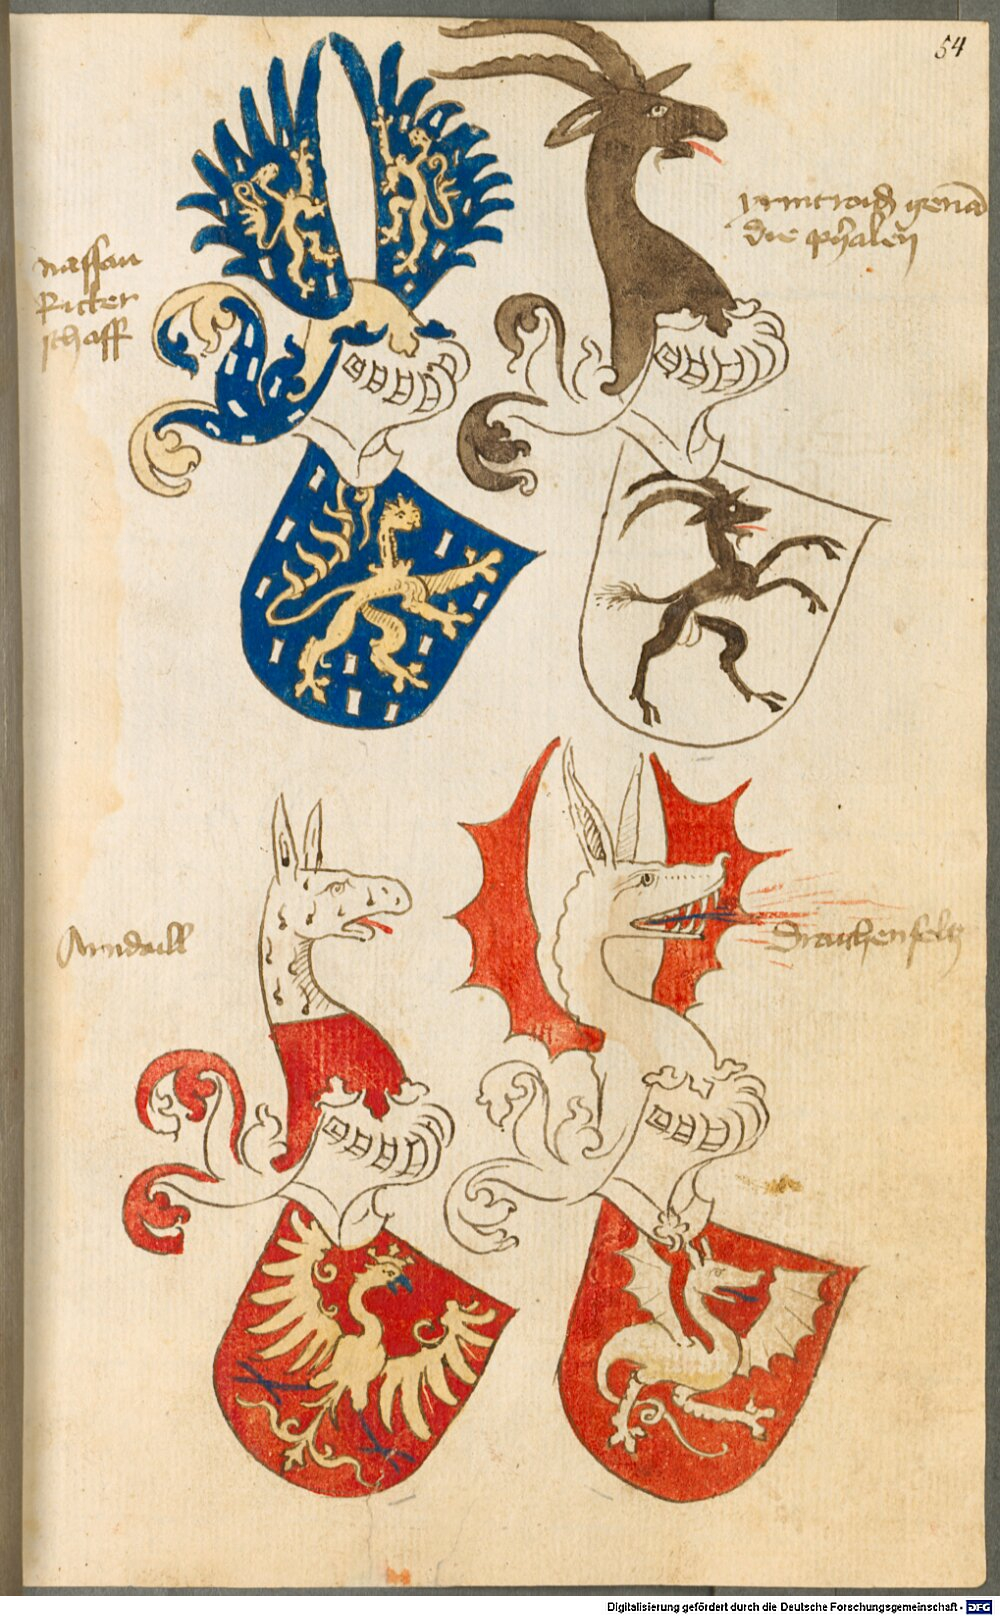 54
nassau
Ritter
schaff
genand
die
Arndaill
Drachenfeltz
Digitalisierung gefördert durch die Deutsche Forschungsgemeinschaft - DFG